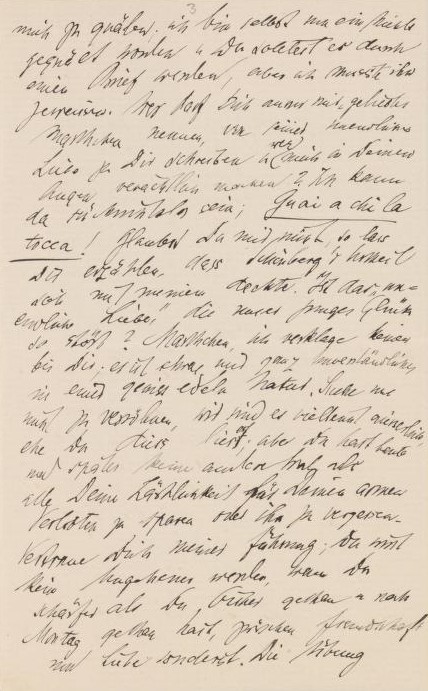 3
mich zu quälen. ich bin selbst um ein Nichts
gequält worden u Du solltest es durch
einen Brief werden, aber ich musste ihn
zerreissen. Wer darf Dich ausser mir geliebtes
Marschchen nennen, von seiner unendlichen
Liebe zu Dir schreiben u wer mich in Deinen
Augen verächtlich machen? Ich kann
da rücksichtslos sein; Guai a chi la
tocca! Glaubst Du mir nicht, so lass
Dir erzählen dass Schönberg's
mit meinem deckte. Ist das un-
endliche Liebe, die unser junges Glück
so stört? Marschchen, ich verklage keinen
bei Dir; es ist etwas mir ganz unverständliches
in einer gewiss edeln Natur. Suche uns
nicht zu versöhnen, wir sind es vielleicht äusserlich,
ehe Du dies liest; aber Du hast heute
und später keine andere Sorge als
alle Deine Zärtlichkeit für Deinen armen
Verlobten zu sparen oder ihn zu vergessen.
Vertraue Dich meiner Führung; Du wirst
kein Ungeheuer werden, wenn Du
schärfer als Du bisher gethan u noch
Montag gethan hast, zwischen Freundschaft
und Liebe sonderst. Die Übung